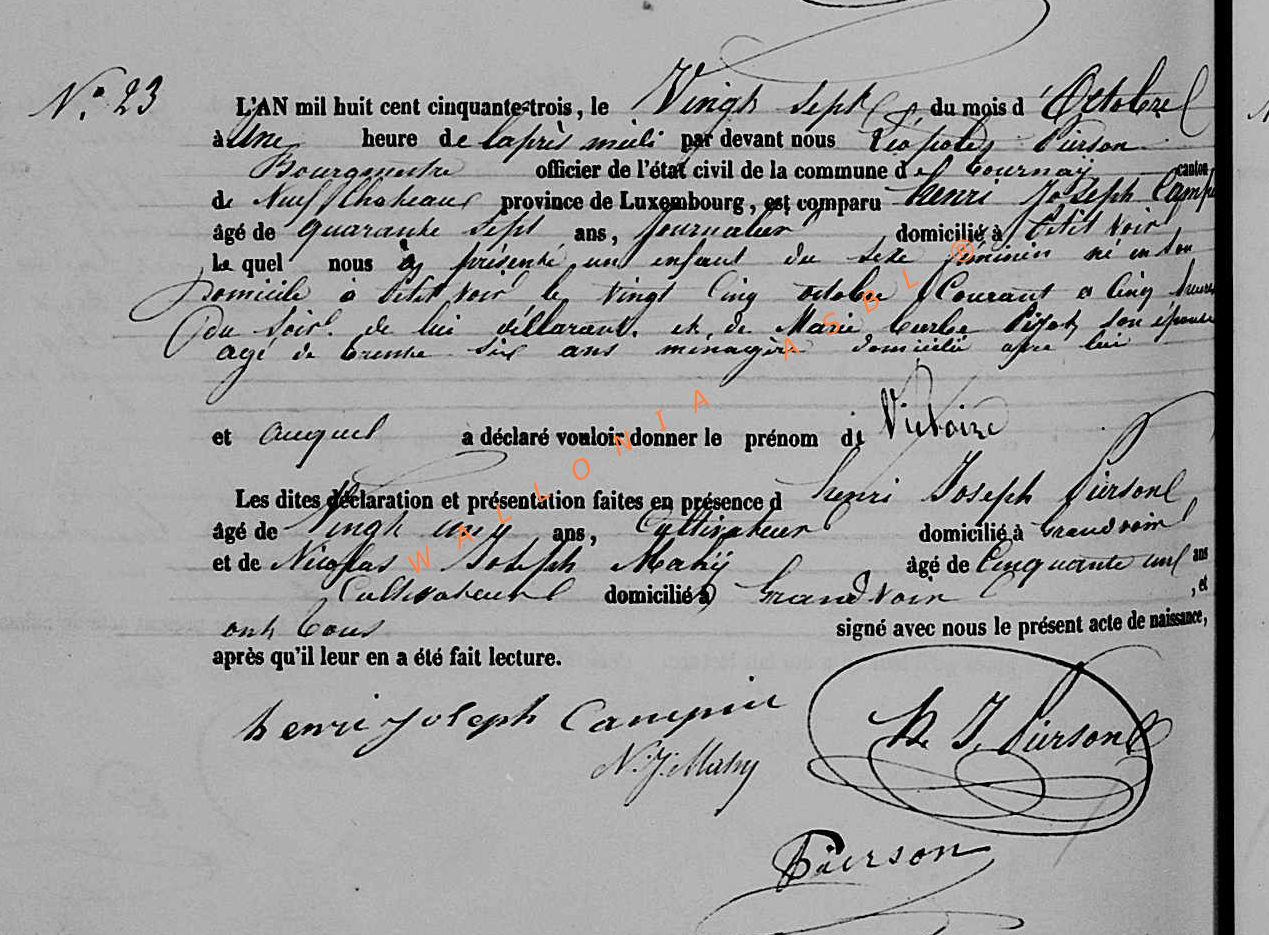 N.° 23
L'AN mil huit cent cinquante-trois, le Vingt sept, du mois d'Octobre
à Une heure de laprès midi par devant nous Léopold Pierson
Bourgmestre officier de l'état civil de la commune de Tournay canton
de Neufchateau province de Luxembourg, est comparu henri Joseph Camp
âgé de quarante sept ans, journalier domicilié à Petit Voir
le quel nous a présenté un enfant du sexe féminin né en son
Domicile à Petit Voir le vingt cinq octobre Courant a cinq heures
du soir de lui déclarant et de Marie son épouse
agé de trente six ans ménagère domicilié lui
et auquel a déclaré vouloir donner le prénom de Victoire
Les dites déclaration et présentation faites en présence d henri Joseph Pierson
âgé de Vingt ans, Cultivateur domicilié à Grandvoir
et de Nicolas Joseph Mahy âgé de Cinquante un ans
Cultivateur domicilié à Grandvoir, et
ont tous signé avec nous le présent acte de naissance,
après qu'il leur en a été fait lecture.
henri joseph Campin
H. J. Pierson
N. J. Mahy
Pierson
WALLONIA ASBL ®